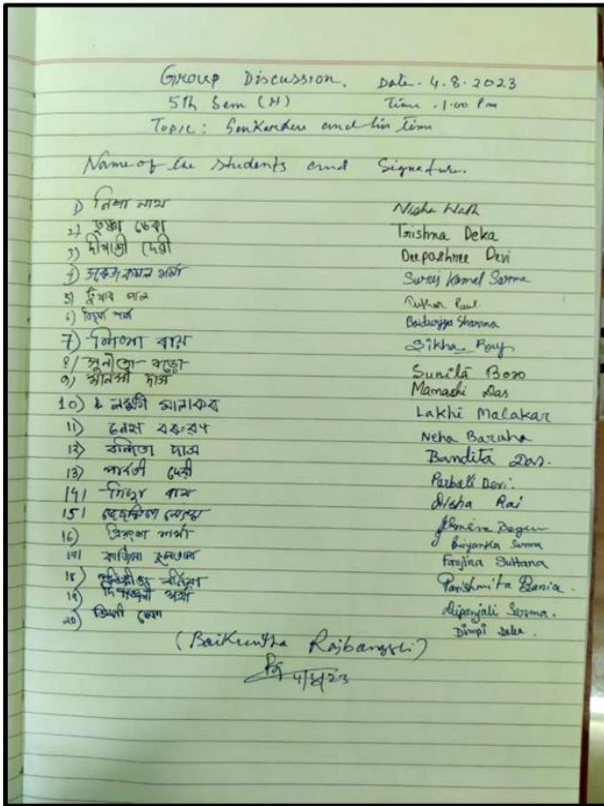 Group Discussion. Date. 4.8.2023
5th Sem (H) Time . 1.00 Pm
Topic: Sankardeu and his time
Name of the students and Signature.
1) নিশা নাথ Nisha Nath
2) তৃষ্ণা ডেকা Trishna Deka
3) দীপাশ্ৰী দেৱী Deepashree Devi
4) Suruj Kamal Sarma
5) তুষাৰ পাল Tushar Paul
6) Baidurjya Sharma
7) শিখা ৰায় Sikha Roy
8) সুনীতা বড়ো Sunita Boro
9) মানসী দাস Mamashi Das
10) লক্ষী মালাকৰ Lakhi Malakar
11) নেহা বৰুৱা Neha Baruha
12) বন্দিতা দাস Bandita Das.
13) পাৰ্বতী দেৱী Parbati Devi.
14) ৰায় Disha Rai
15) Begum
16) প্ৰিয়ংকা শৰ্মা Priyanka Sarma
17) ফাৰ্জিনা চুলতানা Farjina Sultana
18) Parishmita Bania.
19) দিপাঞ্জলী শৰ্মা Dipanjali Sarma.
20) ডিম্পী ডেকা Dimpi Deka.
(Baikuntha Rajbangshi)
4/8/23